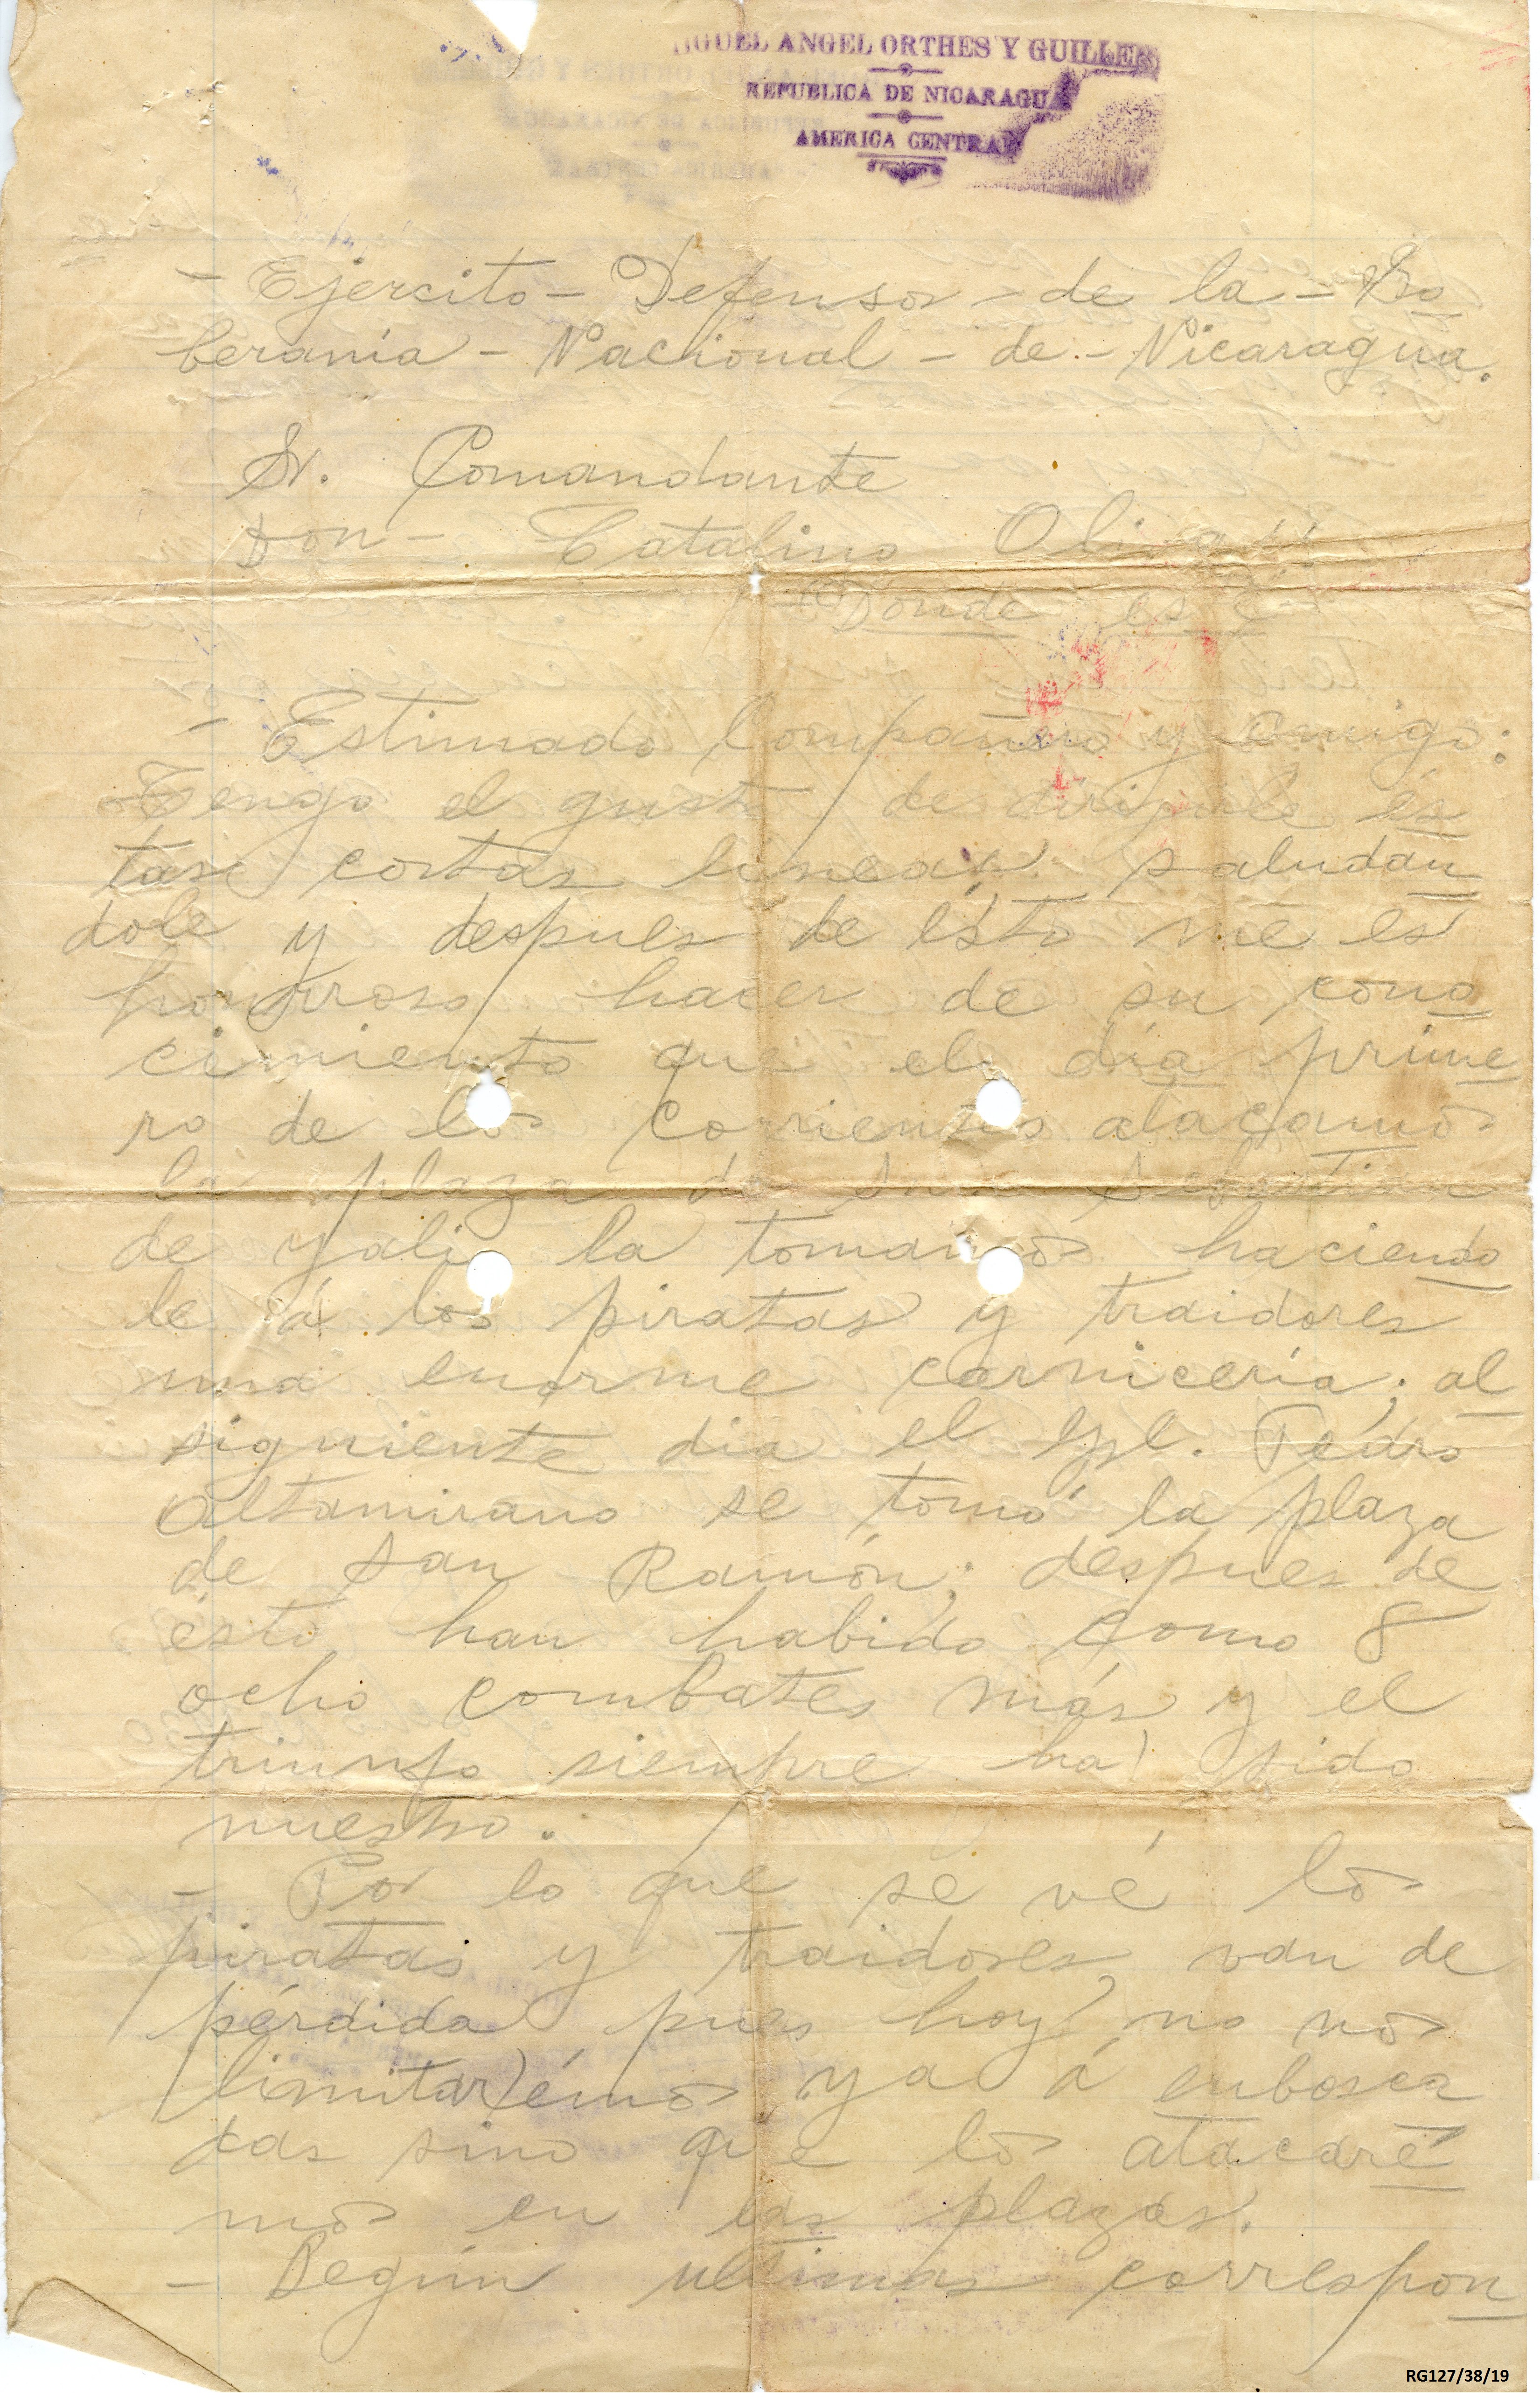 IGUEL ANGEL ORTHES Y GUILLEN
REPUBLICA DE NICARAGUA
AMERICA CENTRAL
- Ejercito - Defensor - de la - So
berania - Nacional - de - Nicaragua.
Sr. Comandante
Don - Catalino Olivas
Donde esté
- Estimado Compañero y amigo:
Tengo el gusto de dirigirle és
tas cortas lineas saludan
dole y despues de ésto me es
honrroso hacer de su cono
cimiento que el día prime
ro de los corrientes atacamos
la plaza de San Sebastian
de yali la tomamos haciendo
le á los piratas y traidores
una enorme carnicería; al
siguiente dia el Gral. Pedro
Altamirano se tomó la plaza
de San Ramón; despues de
ésto han habido como 8
ocho combates más y el
triunfo siempre ha sido
nuestro.
- Por lo que se vé los
piratas y traidores van de
pérdida pues hoy no nos
limitarémos ya á enbosca
das sino que los ataearé
mos en las plazas.
- Según ultimas correspon
RG127/38/19